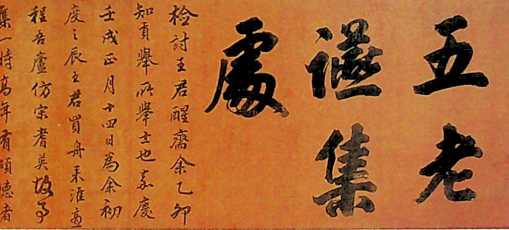 五老
讌集
處
檢討王君醒齋余乙卯
知貢舉所舉士也嘉慶
壬戌正月十四日為余初
度之辰王君買舟來淮
程吾廬仿宋耆英故事
集一時高年有碩德者